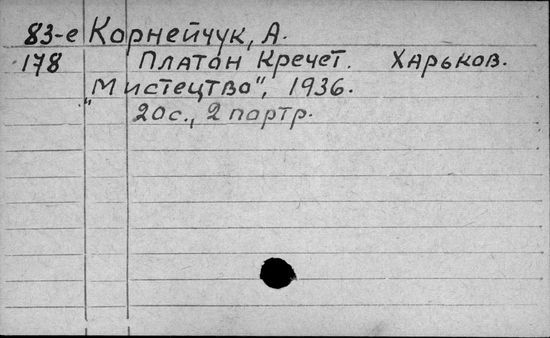 83-е Корнейчук, А.
178 Платон Кречет. Харьков.
"Мистецтво", 1936.
20с., 2 портр.